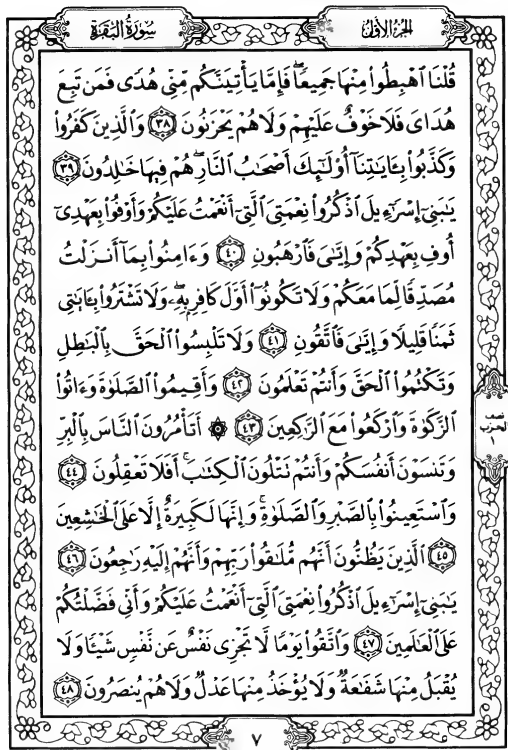 سُورَةُ البَقَرَةِ
الجزء الأوّل
قُلۡنَا ٱهۡبِطُواْ مِنۡهَا جَمِيعٗاۖ فَإِمَّا يَأۡتِيَنَّكُم مِّنِّي هُدٗى فَمَن تَبِعَ
هُدَايَ فَلَا خَوۡفٌ عَلَيۡهِمۡ وَلَا هُمۡ يَحۡزَنُونَ ٣٨ وَٱلَّذِينَ كَفَرُواْ
وَكَذَّبُواْ بِـَٔايَٰتِنَآ أُوْلَٰٓئِكَ أَصۡحَٰبُ ٱلنَّارِۖ هُمۡ فِيهَا خَٰلِدُونَ ٣٩
يَٰبَنِيٓ إِسۡرَٰٓءِيلَ ٱذۡكُرُواْ نِعۡمَتِيَ ٱلَّتِيٓ أَنۡعَمۡتُ عَلَيۡكُمۡ وَأَوۡفُواْ بِعَهۡدِيٓ
أُوفِ بِعَهۡدِكُمۡ وَإِيَّٰيَ فَٱرۡهَبُونِ ٤٠ وَءَامِنُواْ بِمَآ أَنزَلۡتُ
مُصَدِّقٗا لِّمَا مَعَكُمۡ وَلَا تَكُونُوٓاْ أَوَّلَ كَافِرِۭ بِهِۦۖ وَلَا تَشۡتَرُواْ بِـَٔايَٰتِي
ثَمَنٗا قَلِيلٗا وَإِيَّٰيَ فَٱتَّقُونِ ٤١ وَلَا تَلۡبِسُواْ ٱلۡحَقَّ بِٱلۡبَٰطِلِ
وَتَكۡتُمُواْ ٱلۡحَقَّ وَأَنتُمۡ تَعۡلَمُونَ ٤٢ وَأَقِيمُواْ ٱلصَّلَوٰةَ وَءَاتُواْ
ٱلزَّكَوٰةَ وَٱرۡكَعُواْ مَعَ ٱلرَّٰكِعِينَ ٤٣ ۞ أَتَأۡمُرُونَ ٱلنَّاسَ بِٱلۡبِرِّ
وَتَنسَوۡنَ أَنفُسَكُمۡ وَأَنتُمۡ تَتۡلُونَ ٱلۡكِتَٰبَۚ أَفَلَا تَعۡقِلُونَ ٤٤
وَٱسۡتَعِينُواْ بِٱلصَّبۡرِ وَٱلصَّلَوٰةِۚ وَإِنَّهَا لَكَبِيرَةٌ إِلَّا عَلَى ٱلۡخَٰشِعِينَ
٤٥ ٱلَّذِينَ يَظُنُّونَ أَنَّهُم مُّلَٰقُواْ رَبِّهِمۡ وَأَنَّهُمۡ إِلَيۡهِ رَٰجِعُونَ ٤٦
يَٰبَنِيٓ إِسۡرَٰٓءِيلَ ٱذۡكُرُواْ نِعۡمَتِيَ ٱلَّتِيٓ أَنۡعَمۡتُ عَلَيۡكُمۡ وَأَنِّي فَضَّلۡتُكُمۡ
عَلَى ٱلۡعَٰلَمِينَ ٤٧ وَٱتَّقُواْ يَوۡمٗا لَّا تَجۡزِي نَفۡسٌ عَن نَّفۡسٖ شَيۡـٔٗا وَلَا
يُقۡبَلُ مِنۡهَا شَفَٰعَةٞ وَلَا يُؤۡخَذُ مِنۡهَا عَدۡلٞ وَلَا هُمۡ يُنصَرُونَ ٤٨
نصف
الحزب
١
٧